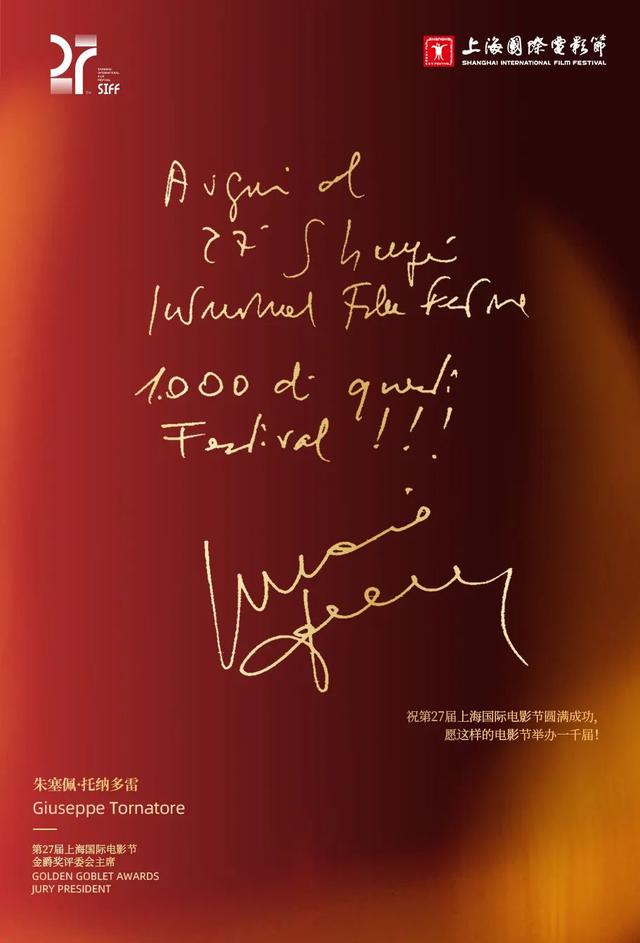 27
TM
SHANGHAI
INTERNATIONAL
FILM
FESTIVAL
SIFF
上海國際電影節
SHANGHAI INTERNATIONAL FILM FESTIVAL
Auguri al
27°
Film
1.000 di questi
Festival !!!
祝第27届上海国际电影节圆满成功,
愿这样的电影节举办一千届!
朱塞佩·托纳多雷
Giuseppe Tornatore
第27届上海国际电影节
金爵奖评委会主席
GOLDEN GOBLET AWARDS
JURY PRESIDENT